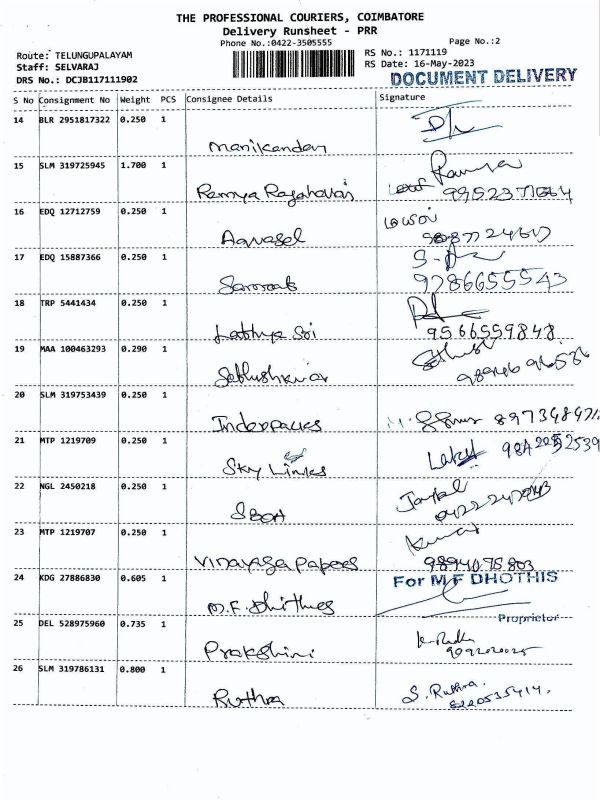 THE PROFESSIONAL COURIERS, COIMBATORE
Delivery Runsheet - PRR
Phone No.:0422-3505555
Page No.:2
Route: TELUNGUPALAYAM
RS No.: 1171119
Staff: SELVARAJ
RS Date: 16-May-2023
DRS No.: DCJB117111902
DOCUMENT DELIVERY
S No Consignment No Weight PCS Consignee Details Signature
14 BLR 2951817322 0.250 1
Manikandan
15 SLM 319725945 1.700 1
Ramya
Ramya Ragahavai
16 EDQ 12712759 0.250 1
17 EDQ 15887366 0.250 1
9786655543
18 TRP 5441434 0.250 1
Labhya Sri 9566559848
19 MAA 100463293 0.290 1
20 SLM 319753439 0.250 1
21 MTP 1219709 0.250 1
Sky Links
22 NGL 2450218 0.250 1
23 MTP 1219707 0.250 1
Kumar
Vinayaga Papers 9894075803
24 KDG 27886830 0.605 1
For M F DHOTHIS
M.F. Dhithies
Proprietor
25 DEL 528975960 0.735 1
Prakshini
26 SLM 319786131 0.800 1
S. Ruthra.
Ruthra 8220535414.